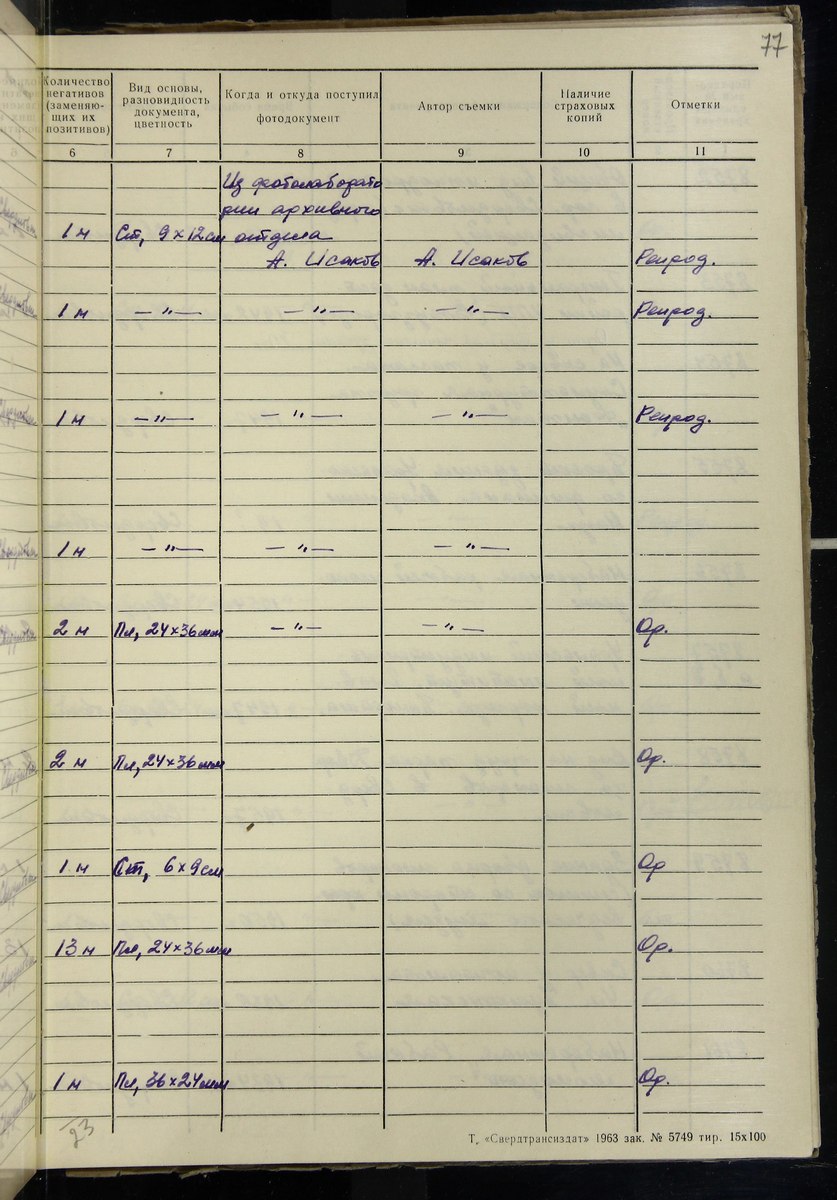 77
Количество негативов (заменяю- щих их позитивов)
Вид основы, разновидность документа, цветность
Когда и откуда поступил фотодокумент
Автор съемки
Наличие страховых копий
Отметки
6 7 8 9 10 11
Из фотолаборато
рии архивного
1 н Ст, 9×12см отдела
А. Исаков А. Исаков Репрод.
1 н —"— —"— —"— Репрод.
1 н —"— —"— —"— Репрод.
1 н —"— —"— —"—
2 н Пл, 24×36мм —"— —"— Ор.
2 н Пл, 24×36мм Ор.
1 н Ст, 6×9см Ор
13 н Пл, 24×36мм Ор.
1 н Пл, 36×24мм Ор.
23
Т. «Свердтрансиздат» 1963 зак. № 5749 тир. 15х100